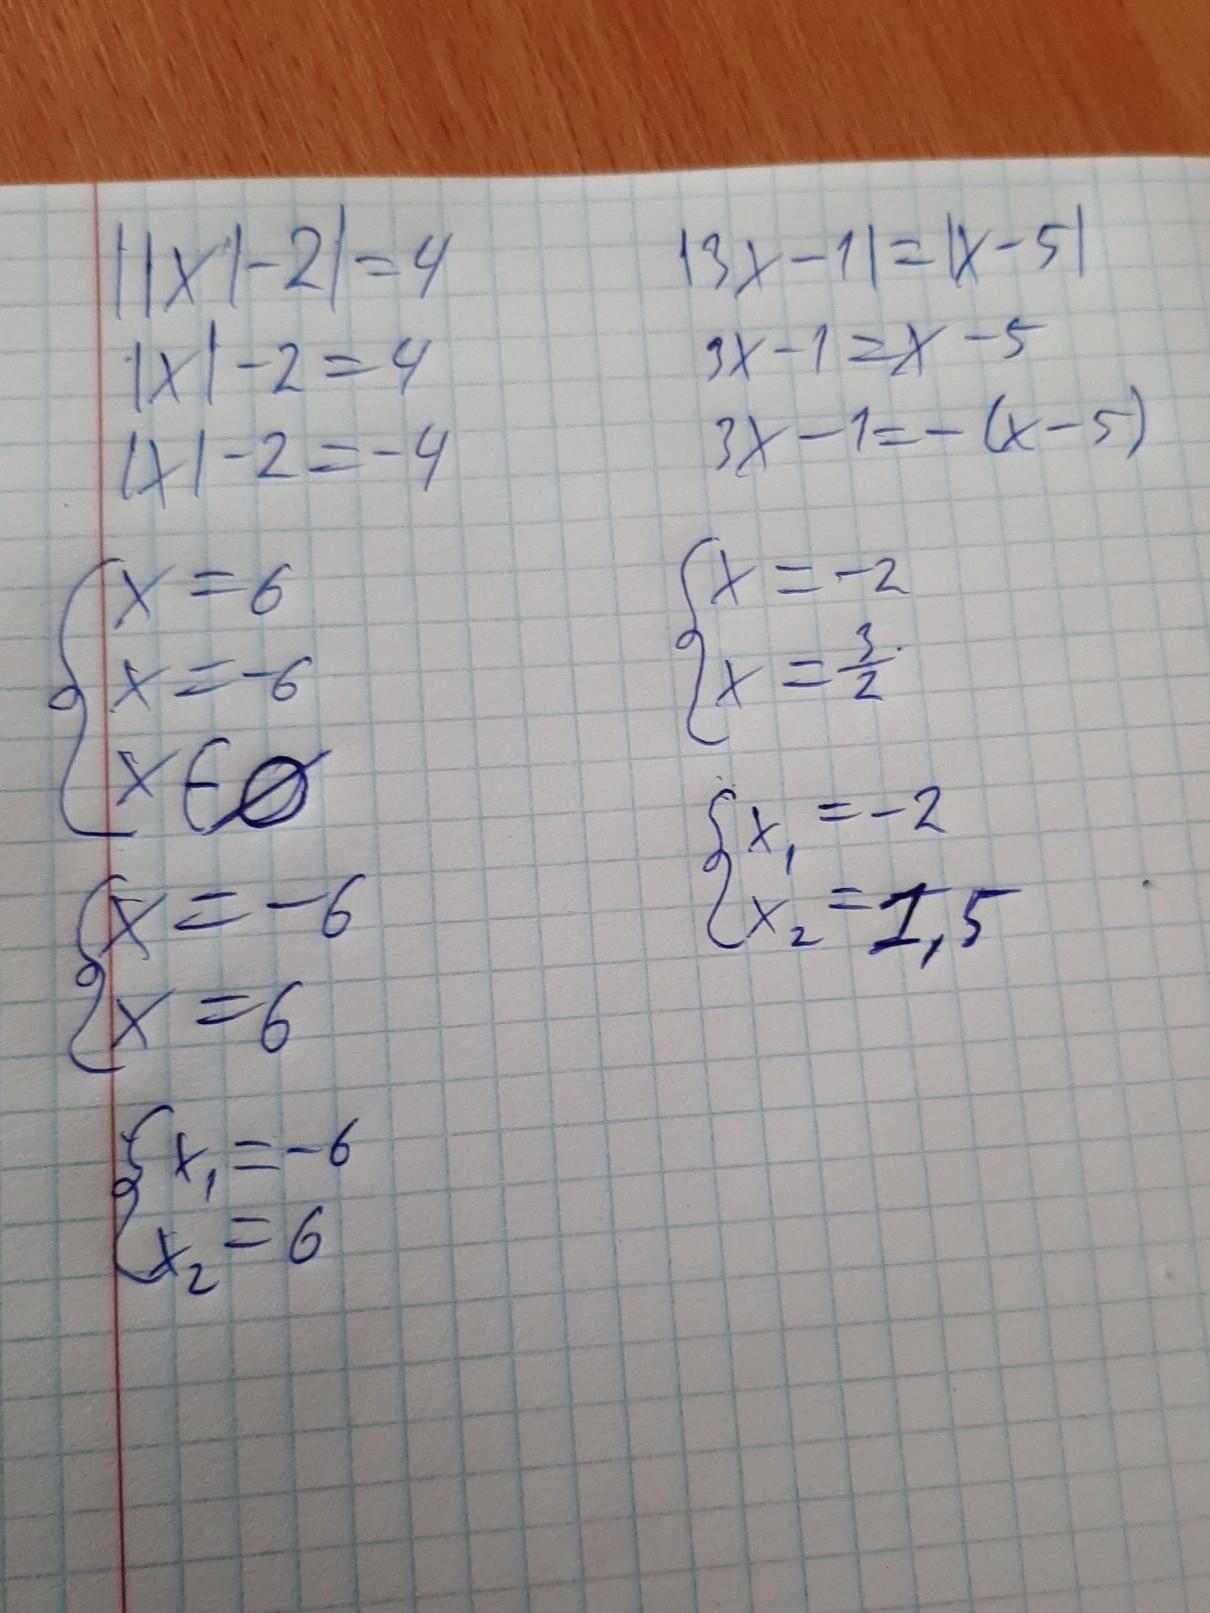 ||x|-2|=4
|x|-2=4
|x|-2=-4
x=6
x=-6
x∈∅
x=-6
x=6
x₁=-6
x₂=6
|3x-1|=|x-5|
3x-1=x-5
3x-1=-(x-5)
x=-2
x=3/2
x₁=-2
x₂=1,5